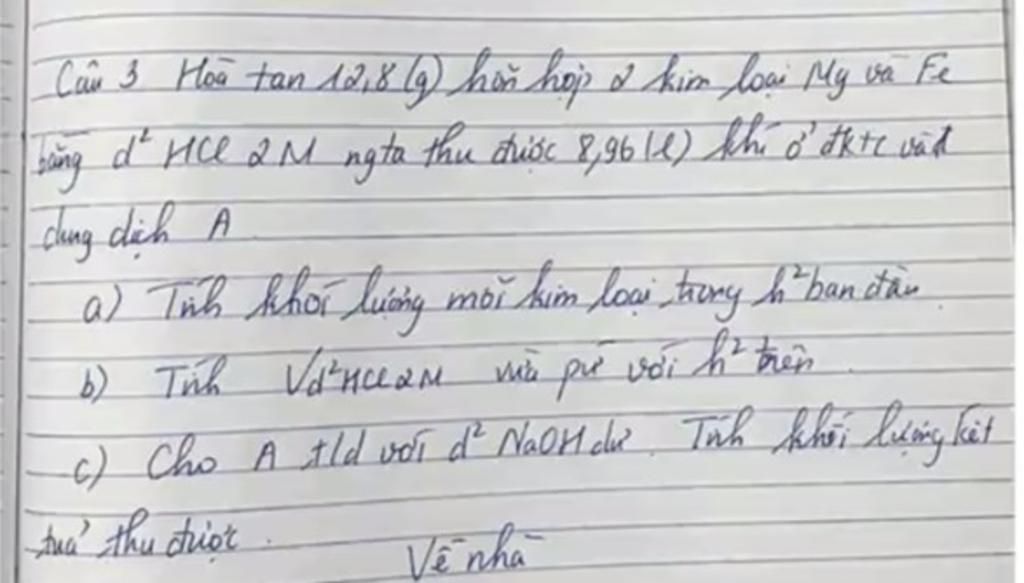 Câu 3 Hoà tan 12,8 (g) hỗn hợp 2 kim loại Mg và Fe
bằng d² HCl 2M ngta thu được 8,96 (l) khí ở đktc và
dung dịch A
a) Tính khối lượng mỗi kim loại trong h² ban đầu
b) Tính Vd²HCl 2M vừa pứ với h² trên.
c) Cho A t/d với d² NaOH dư. Tính khối lượng kết
tuả thu được.
Về nhà